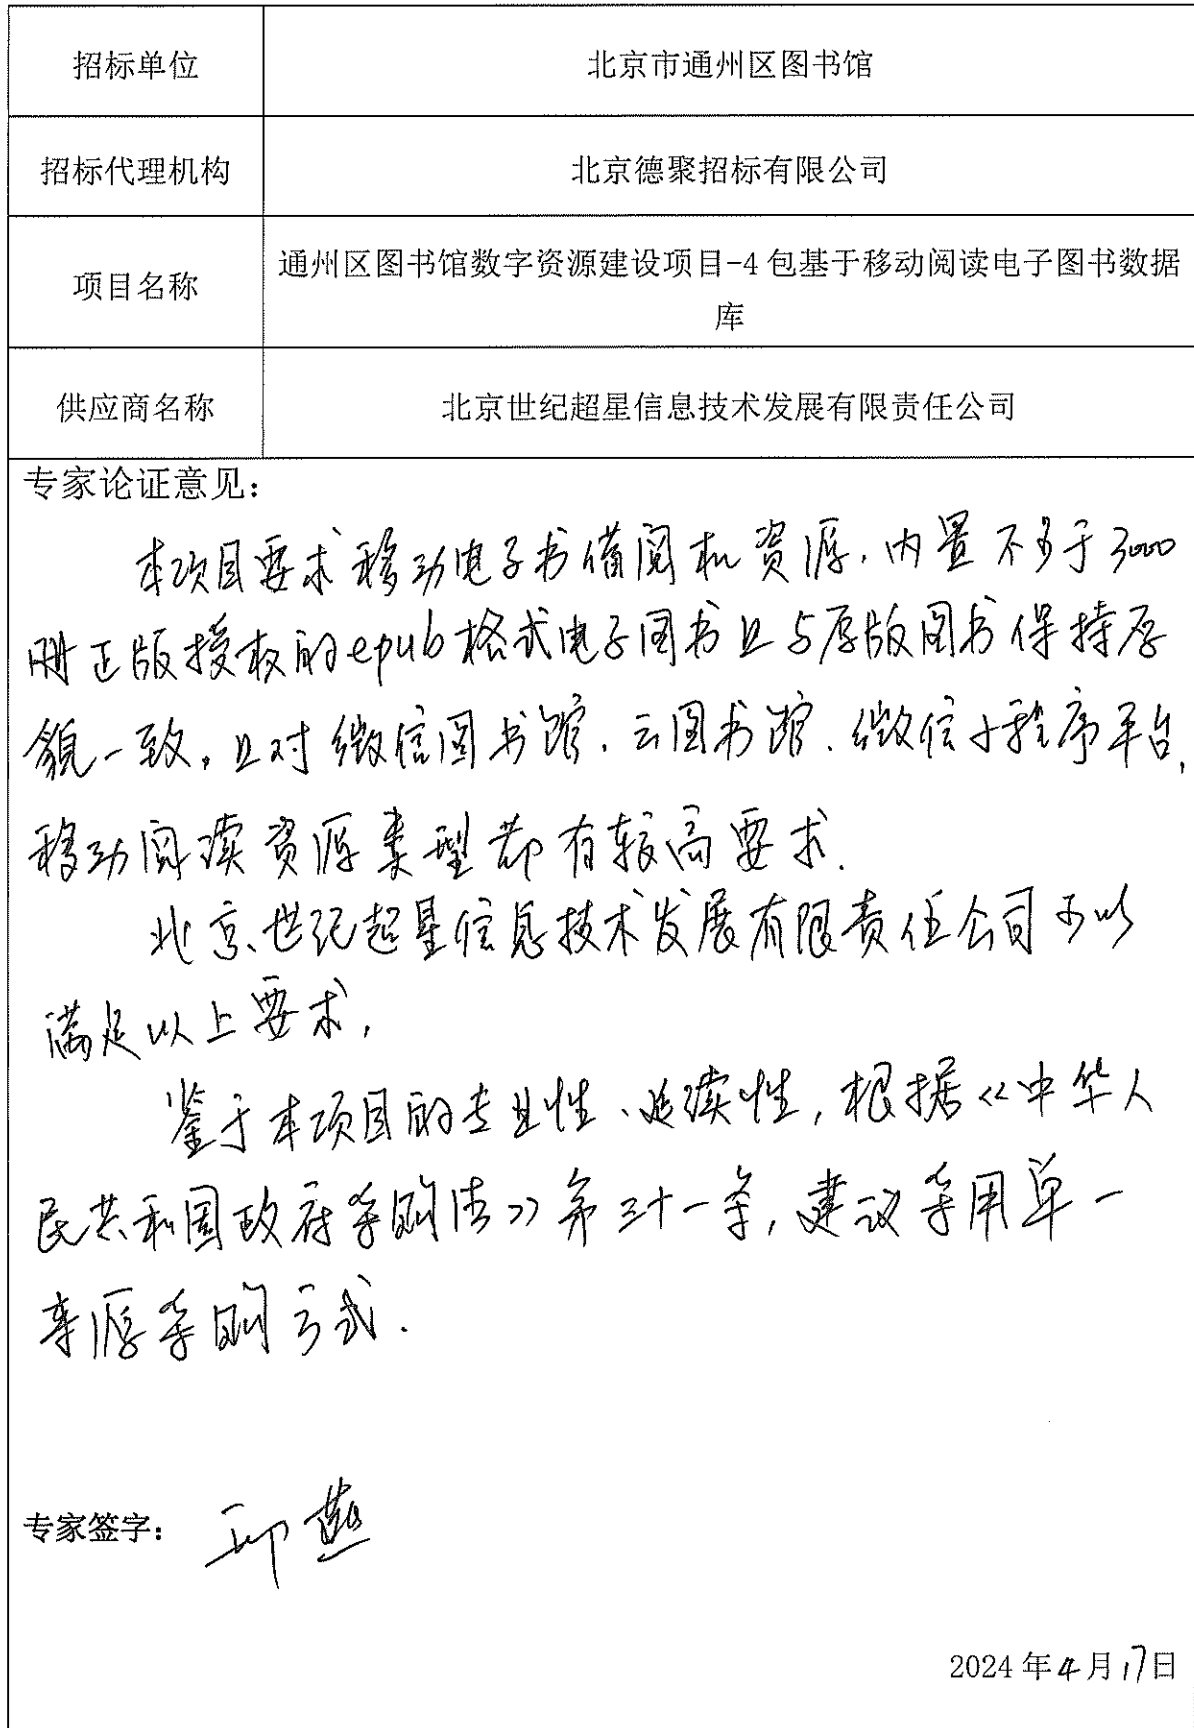 招标单位
北京市通州区图书馆
招标代理机构
北京德聚招标有限公司
项目名称
通州区图书馆数字资源建设项目-4包基于移动阅读电子图书数据
库
供应商名称
北京世纪超星信息技术发展有限责任公司
专家论证意见：
本项目要求移动电子书借阅机资源，内置不少于3000
册正版授权的epub格式电子图书且与原版图书保持原
貌一致，且对微信图书馆、云图书馆、微信小程序平台，
移动阅读资源类型都有较高要求.
北京世纪超星信息技术发展有限责任公司可以
满足以上要求，
鉴于本项目的专业性、延续性，根据《中华人
民共和国政府采购法》第三十一条，建议采用单一
来源采购方式.
专家签字：
2024年4月17日